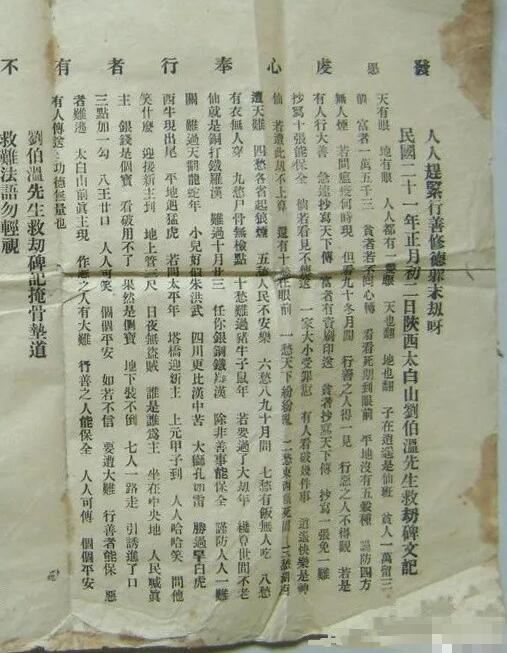 發 虔 心 奉 行 者 有 不
人人趕緊行善修德罪末劫呀
民國二十一年正月初二日陝西太白山劉伯溫先生救劫碑文記
天有眼 地有眼 人人都有一雙眼 天也翻 地也翻 子在逍遙是仙班 貧人一萬留三
富者一萬五千三 貧者若不回心轉 看看死期到眼前 平地沒有五穀種 謹防四方
無人煙 若問瘟疫何時現 但看九十冬月間 行善之人得一見 行惡之人不得觀 若是
有人行大善 急速抄寫天下傳 富者有資刷印送 貧者抄寫天下傳 抄寫一張免一難
抄寫十張能保全 倘若看見不傳送 一家大小受罪愆 有人看破幾件事 逍遙快樂是神
仙 若遭此劫不上算 還有十愁在眼前 一愁天下紛紛亂 二愁東西餓死 三愁湖
遭天難 四愁各省起狼煙 五愁人民不安樂 六愁八九十月間 七愁有飯無人吃 八愁
有衣無人穿 九愁尸骨無檢點 十愁難過豬牛子鼠年 若要過了大劫年 世間不老
仙就是銅打鐵羅漢 難過十月廿三 任你銀鋼鐵漢 除非善事能保全 謹防人人一難
關 難過天翻龍蛇年 小兒好似朱洪武 四川更比漢中苦 大獅孔如雷 勝過白虎
西牛現出尾 平地遇猛虎 若問太平年 塔橋迎新主 上元甲子到 人人哈哈笑 問他
笑什麼 迎接新主到 地上管三尺 日夜無盜賊 誰是誰爲主 坐在中央地 人民喊眞
主 銀錢是個寶 看破用不了 果然是個寶 地下裝不倒 七人一路走 引誘進了口
三點加一勾 八王廿口 人人可笑 個個平安 如若不信 要遭大難 行善者能保 惡
者難逃 太白山前眞主現 作惡之人有大難 行善之人能保全 人人可傳 個個平安
有人傳送 功德無量也
劉伯溫先生救劫碑記掩骨墊道
救難法語勿輕視